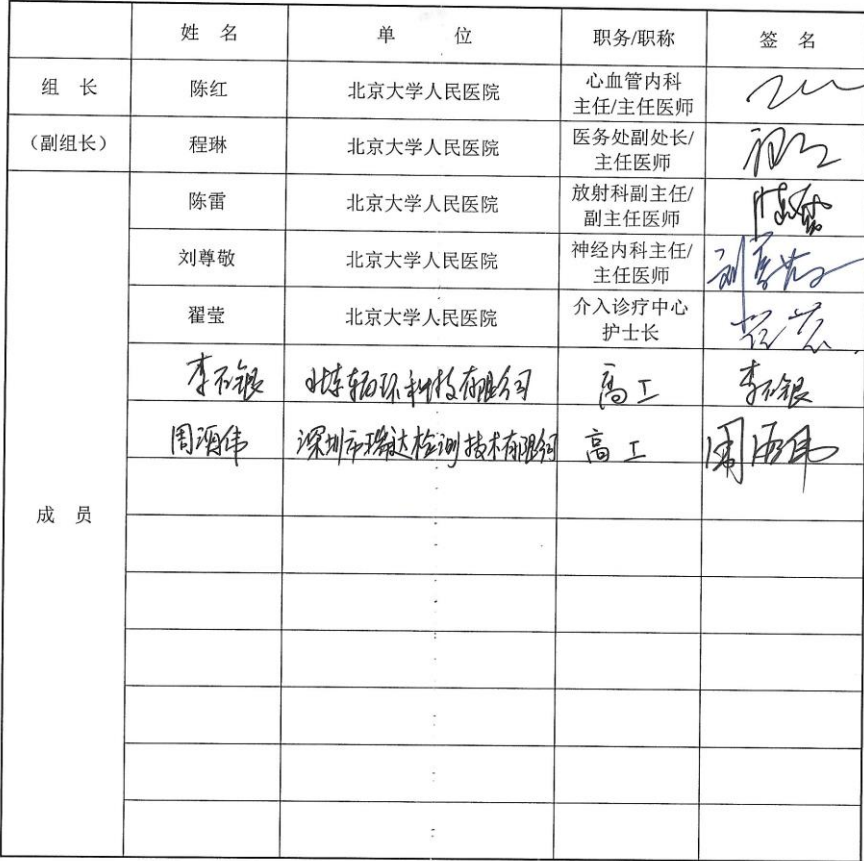 姓 名 单 位 职务/职称 签 名
组 长 陈红 北京大学人民医院 心血管内科
主任/主任医师
（副组长） 程琳 北京大学人民医院 医务处副处长/
主任医师
成 员
陈雷 北京大学人民医院 放射科副主任/
副主任医师
刘尊敬 北京大学人民医院 神经内科主任/
主任医师 刘尊敬
翟莹 北京大学人民医院 介入诊疗中心
护士长
高工
深圳市瑞达检测技术有限公司 高工